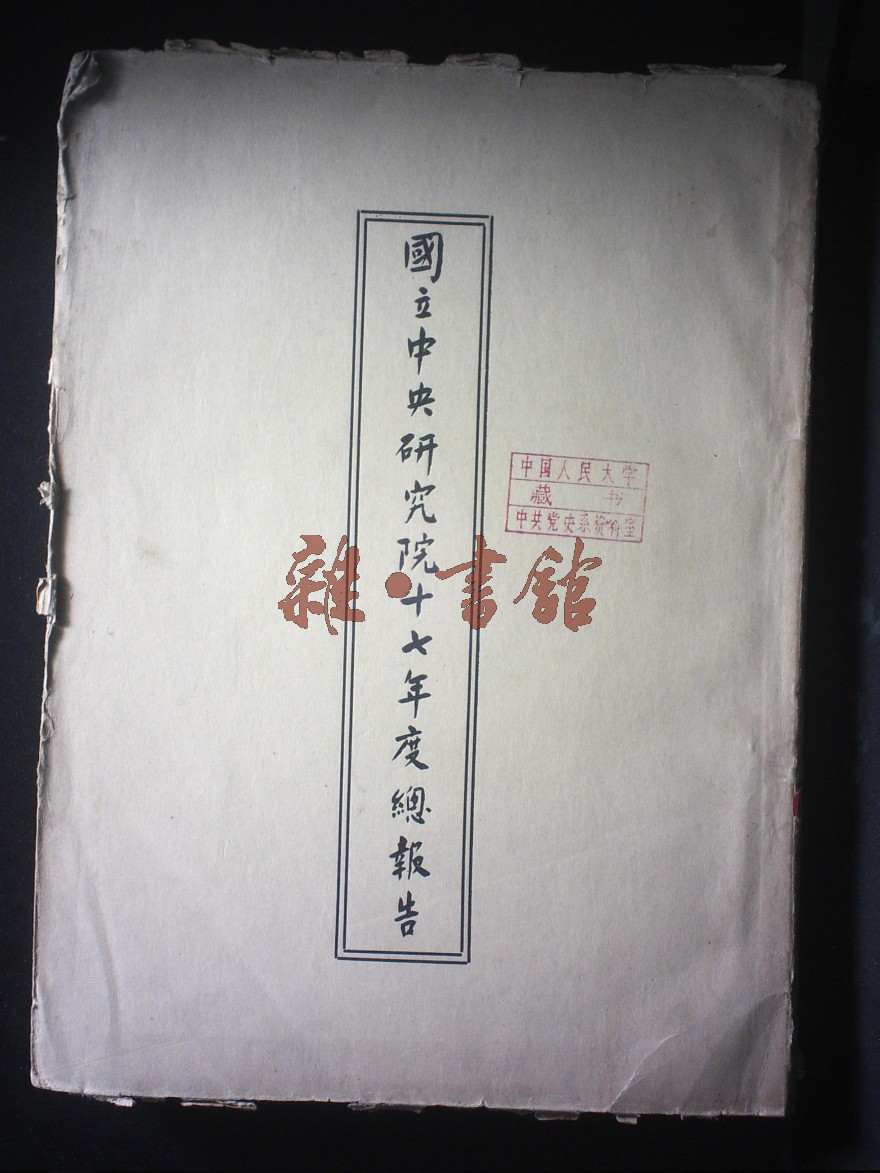 國立中央研究院十七年度總報告
中国人民大学
藏书
中共党史系资料室
雜·書館